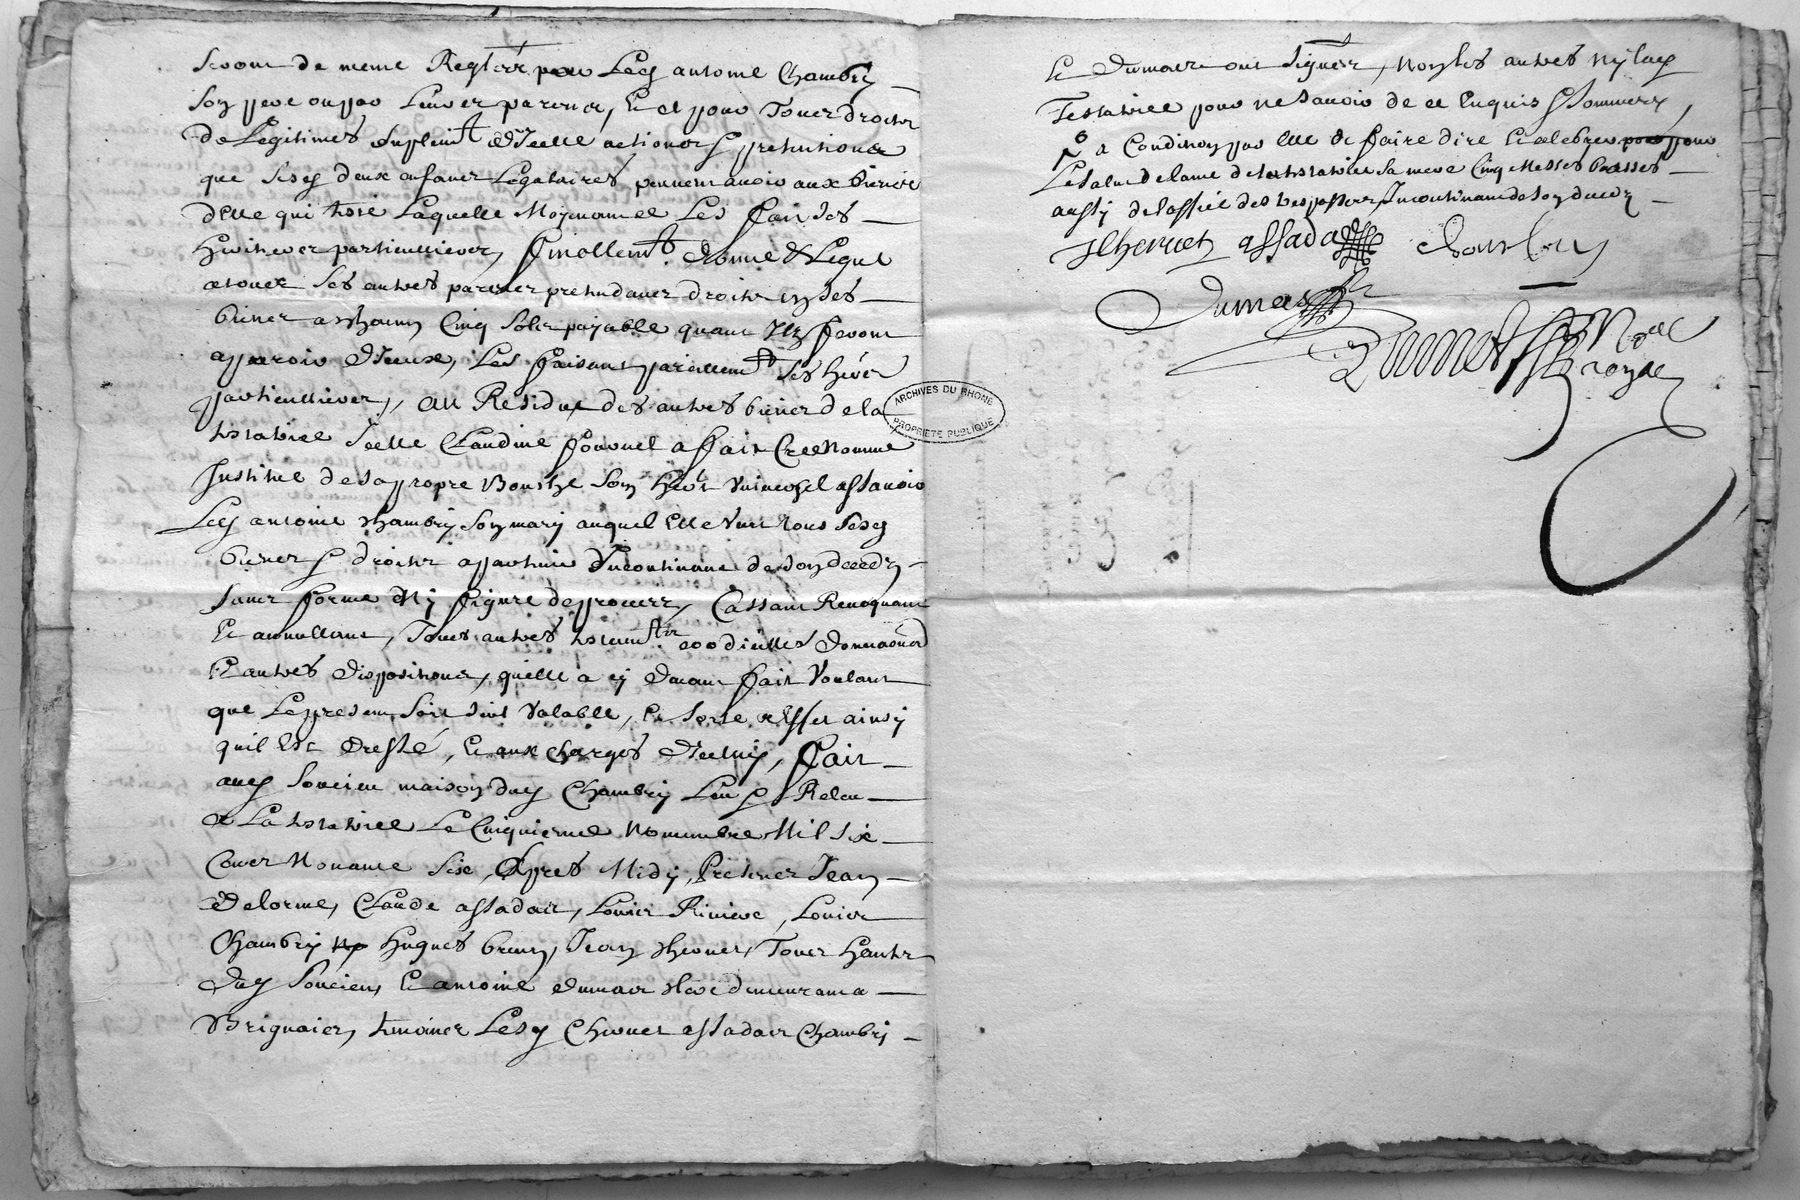 seront de meme Regleer par Led antoine Chambry
son pere ou par Leurs parens, Et et pour Tous droits
de Legitimes suplemt d'Icelle actions & pretentions
que sesd deux enfans Legataires peuvent avoir aux biens
d'elle qui teste Laquelle Moyenant ce Les fait ses
heritiers particulliers, finallemt donne & Legue
a tous ses autres parens pretendans droits en ses
biens a chacun Cinq sols payable quant Ilz feront
aparoir d'Iceux, Les faisant parellemt ses hers
particulliers, Au Residue des autres biens de la
testatrice Icelle Claudine fournel a fait Cree Nomme
Institue de sa propre Bouche son her universel assavoir
Led antoine chambry son mary auquel Elle veut tous sesd
biens & droits apartenir Incontinant de son deceds
sans forme Ny figure de proces, Cassant Revoquant
Et annullant, Tous autres testamts codicilles donnaons
Et autres dispositions, qu'elle a cy devant fait Voulant
que Le present soit seul Valable, Et sorte effet ainsy
quil Est dressé, Et aux charges d'Iceluy, fait
aud soucieu maison dud Chambry Leu & Releu
a La testatrice Le Cinquieme novembre Mil six
Cens Nonante sixe, Apres Midy, Presens Jean
Delorme, Claude assadat, Louis Riviere, Louis
Chambry Hugues brun, Jean chervet, Tous habts
dud soucieu, Et antoine dumas clerc demeurant a
Brignais, temoins Lesd Chervet assadat Chambry
Et Dumas ont signe, Non les autres Ny lad
Testatrice pour ne savoir de ce Enquis & Sommes,
a Condition par elle de faire dire Et celebrer pour
Le salut de l'ame de la testatrice sa mere Cinq Messes basses
aussy de l'office des trespasses Incontinant de son deceds
J Chervet assada chambry
Dumas
Nore Royal
ARCHIVES DU RHONE
PROPRIETE PUBLIQUE